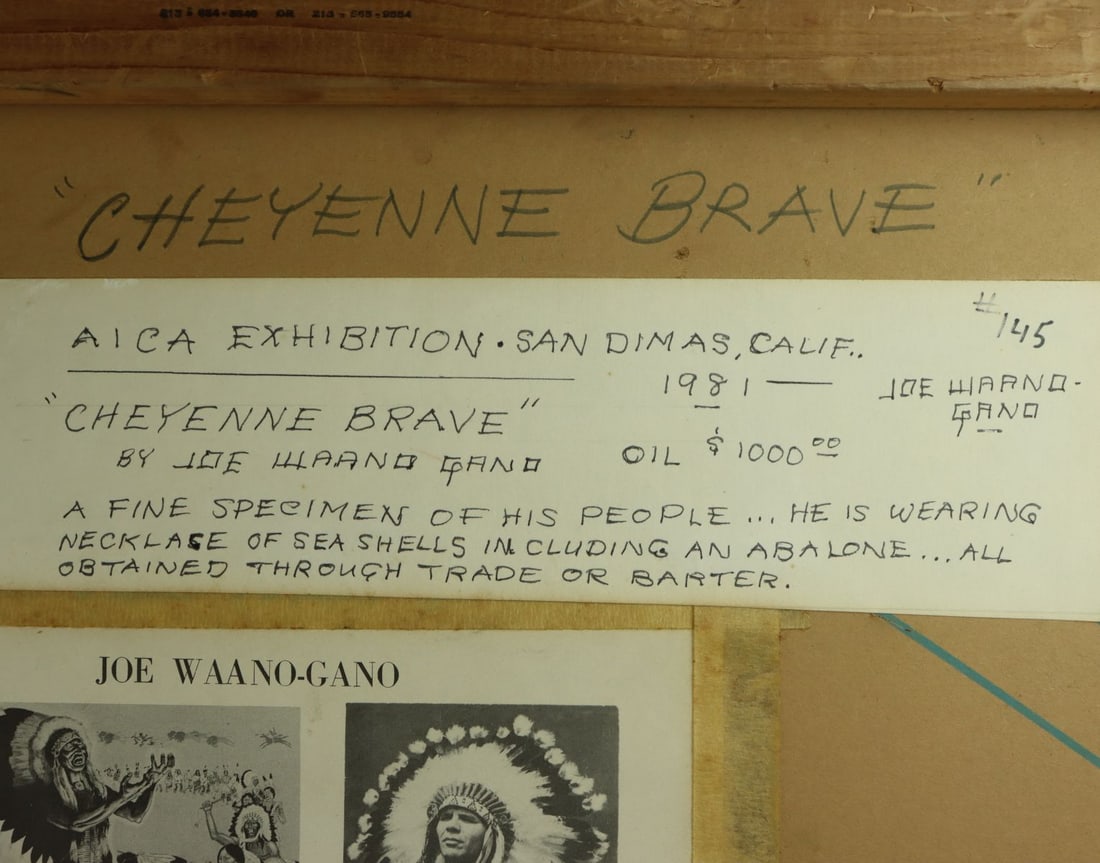 "CHEYENNE BRAVE"
#145
AICA EXHIBITION · SAN DIMAS, CALIF..
1981 —
JOE WAANO-
GANO
"CHEYENNE BRAVE"
BY JOE WAANO GANO
OIL $1000 00
A FINE SPECIMEN OF HIS PEOPLE ... HE IS WEARING
NECKLACE OF SEA SHELLS INCLUDING AN ABALONE ... ALL
OBTAINED THROUGH TRADE OR BARTER.
JOE WAANO-GANO